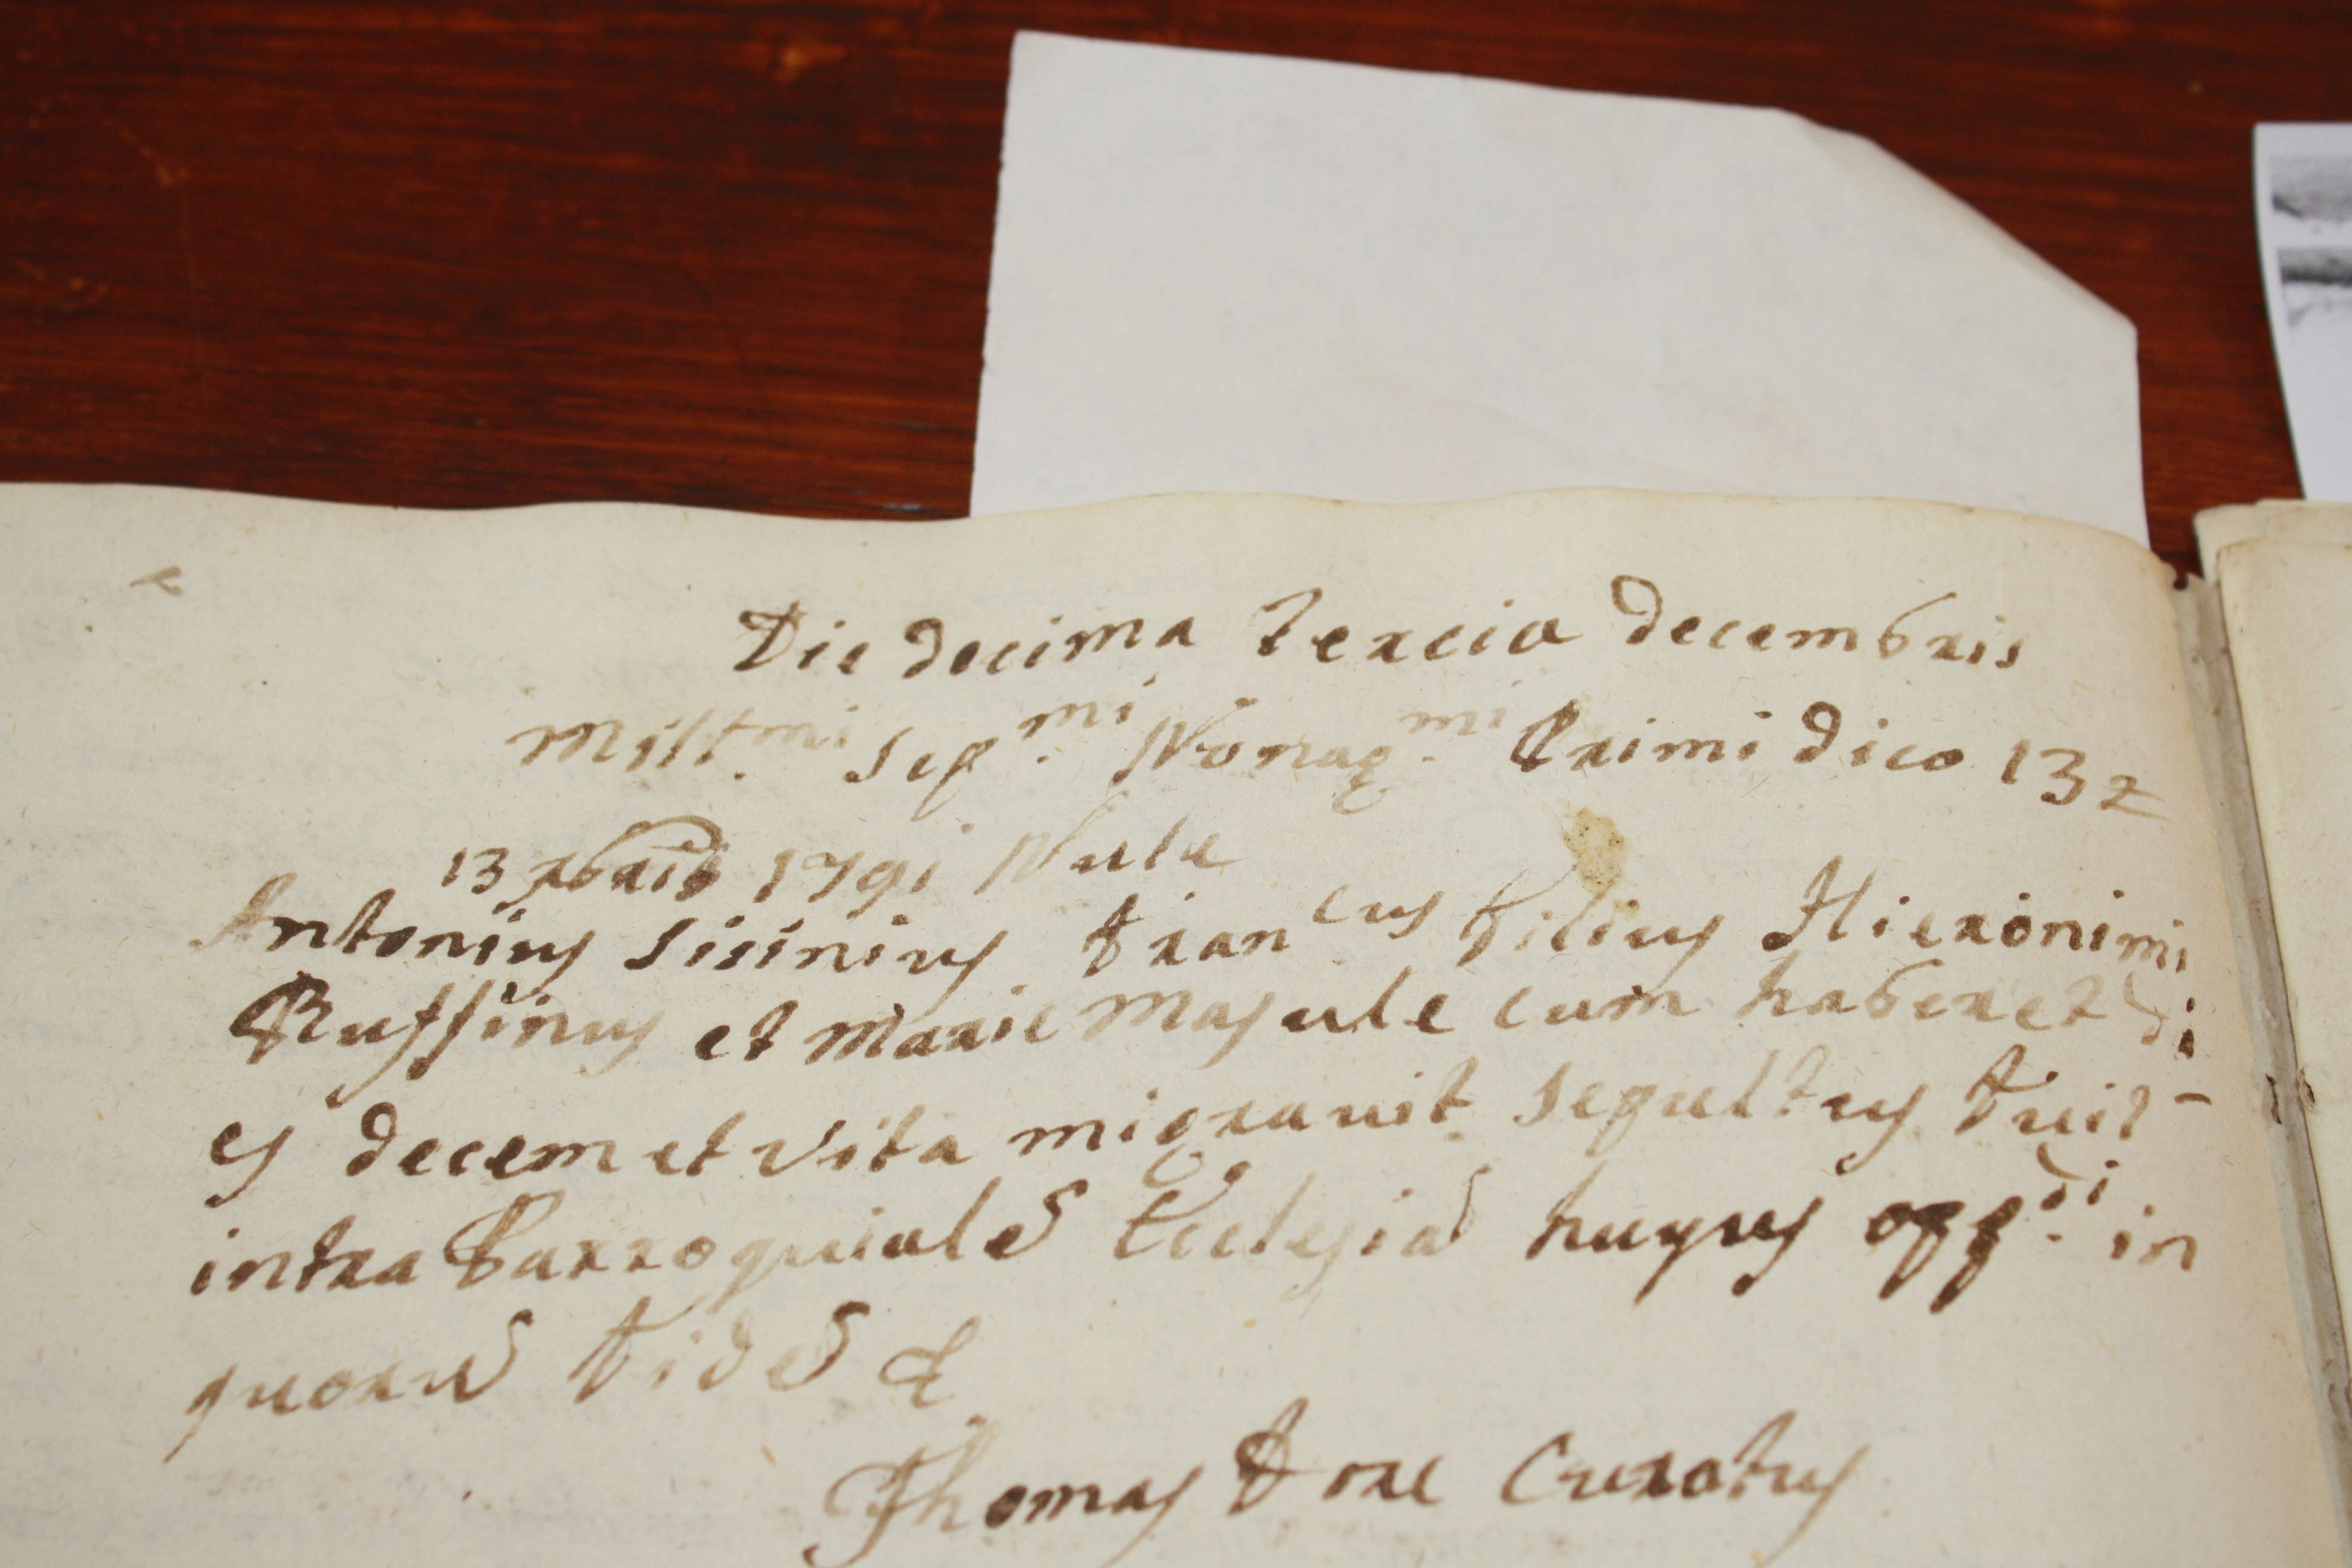 Die decima tercia decembris
Mill.mi Sep.mi Nonag.mi Primi dico 13
13 xbris 1791 Nule
Antonius Sisinius Fran cus Filius Hieronimi
Ruffinus et Marie Masule cum haberet di
es decem et vita migravit sepultus Fuit -
intra Parroquiale Ecclesia huyus opp.di in
quoru Fide &
Thomas Dore Curatus